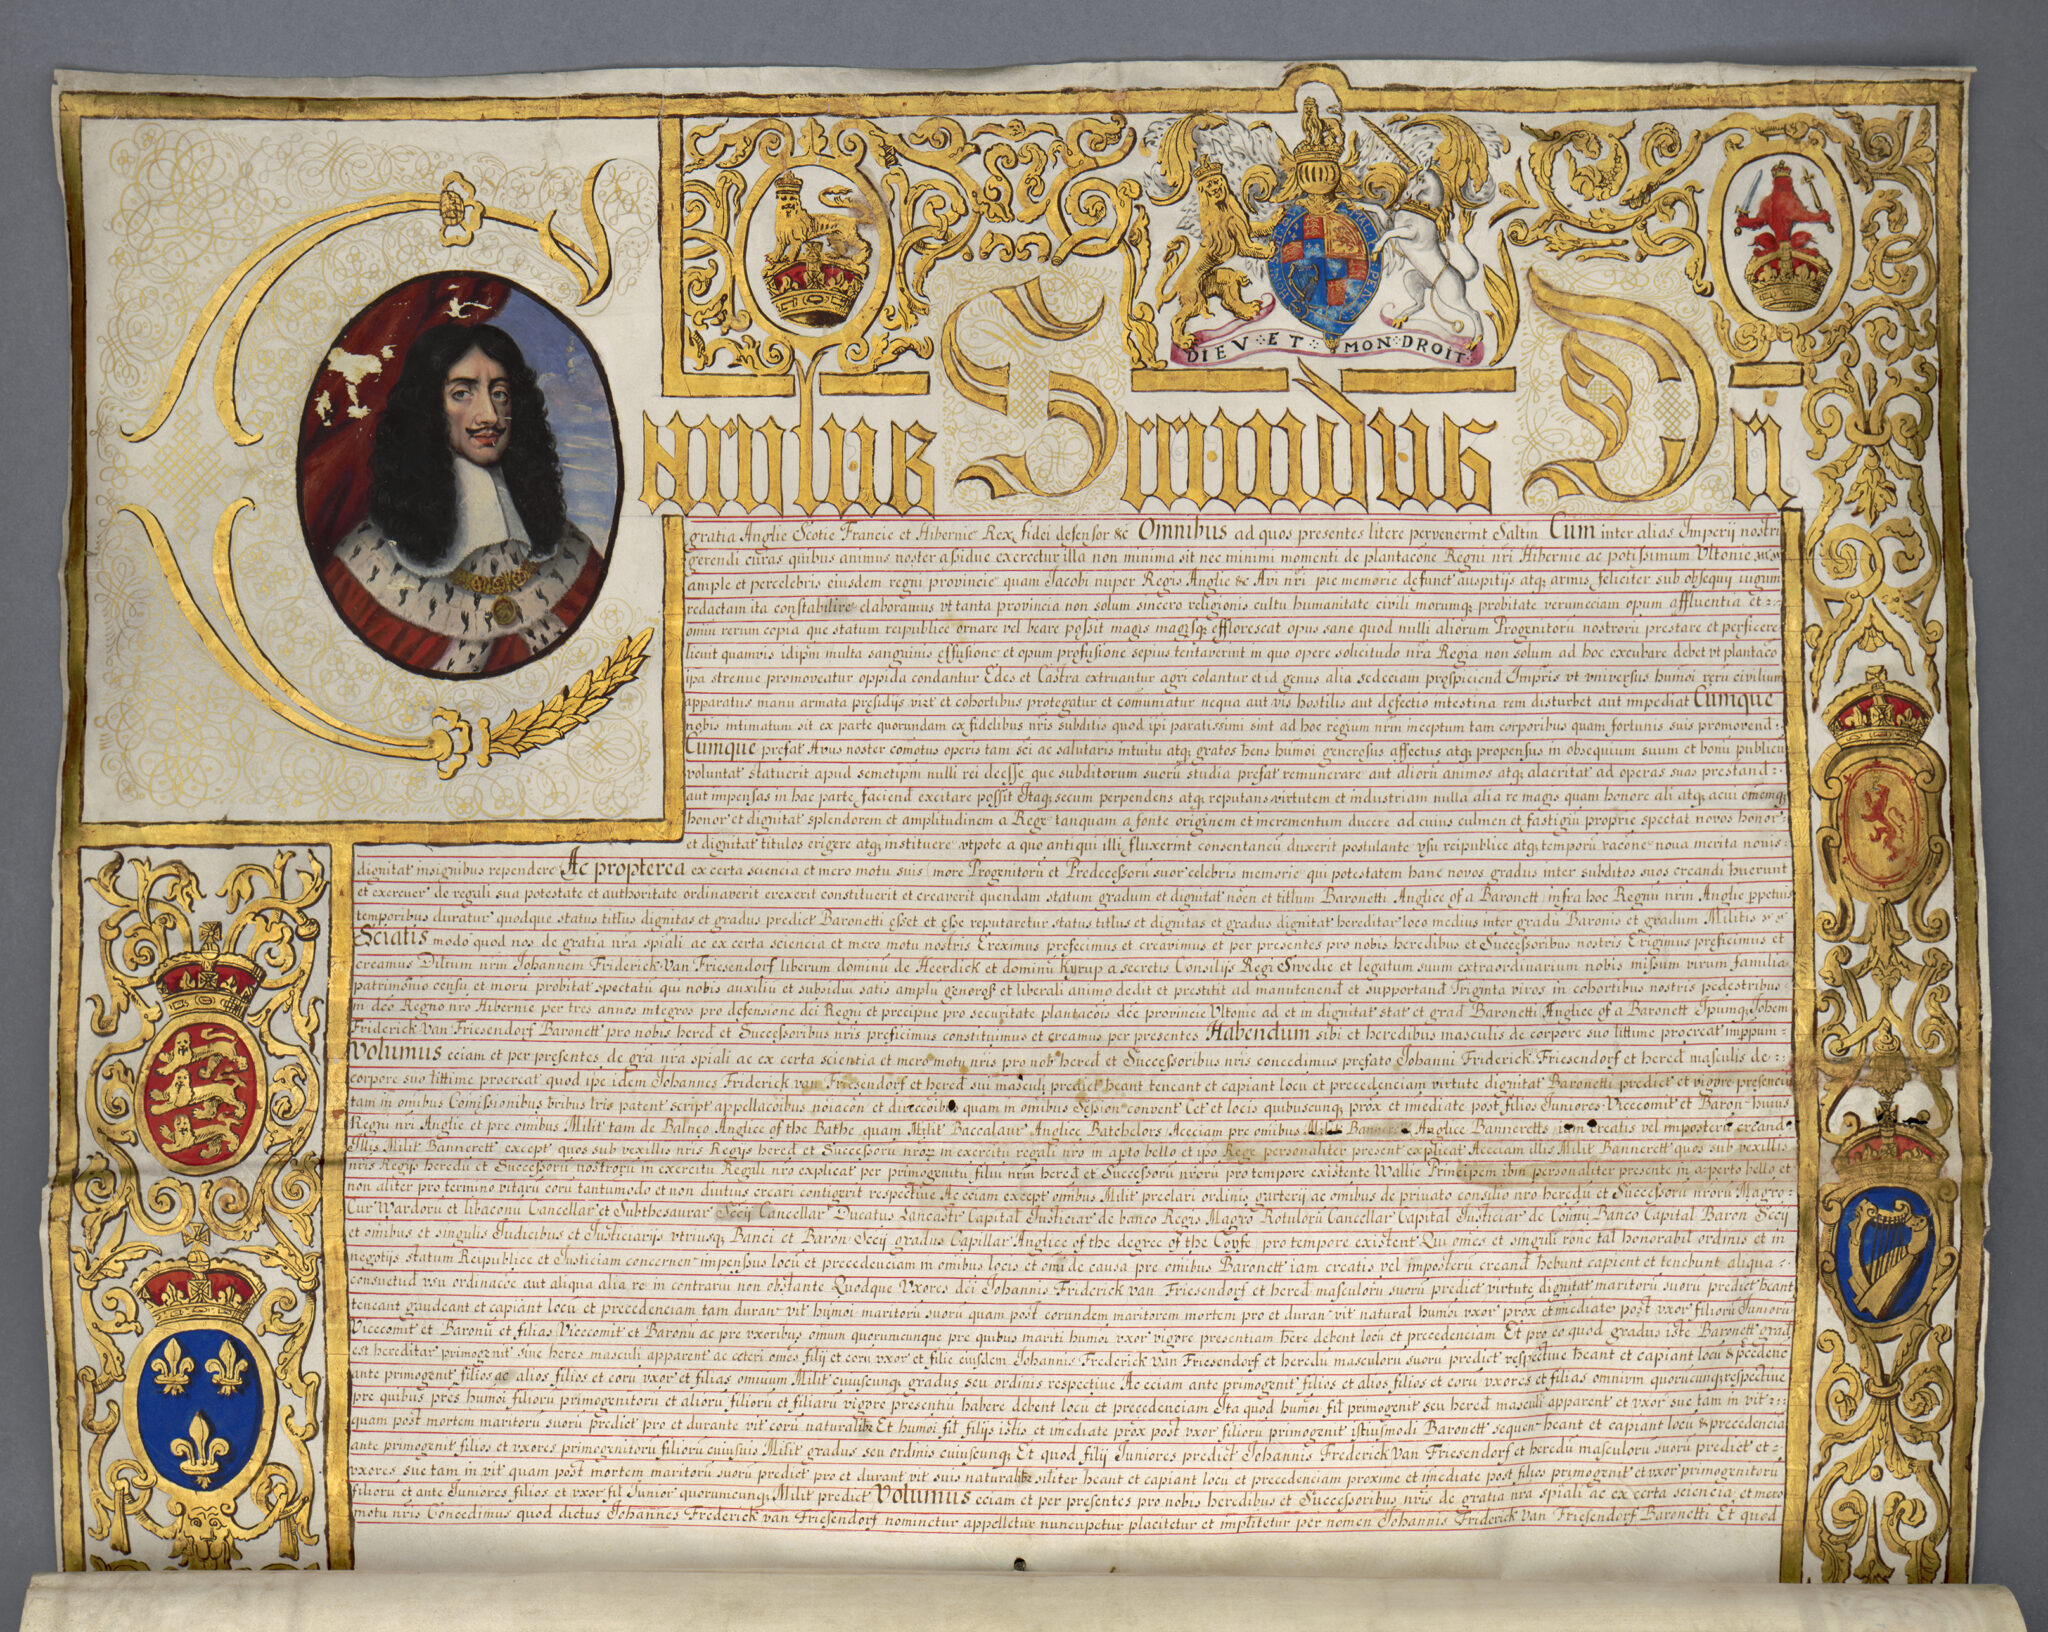 DIEV · ET · MON · DROIT
Carolus Secundus Dei
gratia Anglie Scotie Francie et Hibernie Rex fidei defensor &c Omnibus ad quos presentes litere pervenerint Saltm Cum inter alias Imperij nostri
gerendi curas quibus animus noster assidue exercetur illa non minima sit nec minimi momenti de plantacõne Regni nri Hibernie ac potissimum Vltonie
ample et percelebris eiusdem regni provincie quam Jacobi nuper Regis Anglie &c Avi nri pie memorie defunct auspitijs atq; armis feliciter sub obsequij iugum
redactam ita constabilire elaboramus vt tanta provincia non solum sincero religionis cultu humanitate civili morumq; probitate verumeciam opum affluentia et
omiu rerum copia que statum reipublice ornare vel beare possit magis magisq; efflorescat opus sane quod nulli aliorum Progenitorũ nostrorũ prestare et perficere
licuit quamvis idipm multa sanguinis effusione et opum profusione sepius tentaverint in quo opere solicitudo nra Regia non solum ad hoc excubare debet vt plantaco
ipa strenue promoveatur oppida condantur Edes et Castra extruantur agri colantur et id genus alia sed eciam prospiciend Impris vt vniversus humoi rerũ civilium
apparatus manu armata presidijs vizt et cohortibus protegatur et comuniatur nequa aut vis hostilis aut defectio intestina rem disturbet aut impediat Cumque
nobis intimatum sit ex parte quorundam ex fidelibus nris subditis quod ipi paratissimi sint ad hoc regium nrm inceptum tam corporibus quam fortunis suis promovend
Cumque prefat Avus noster comotus operis tam sci ac salutaris intuitu atq; gratos hens humoi generosus affectus atq; propensus in obsequium suum et bonũ publicũ
voluntat statuerit apud semetipm nulli rei deesse que subditorum suorũ studia prefat remunerare aut aliorũ animos atq; alacritat ad operas suas prestand
aut impensas in hac parte faciend excitare possit Itaq; secum perpendens atq; reputans virtutem et industriam nulla alia re magis quam honore ali atq; acui omemq;
honor et dignitat splendorem et amplitudinem a Rege tanquam a fonte originem et incrementum ducere ad cuius culmen et fastigiũ proprie spectat novos honor
et dignitat titulos erigere atq; instituere vtpote a quo antiqui illi fluxerint consentaneũ duxerit postulante vsu reipublice atq; temporũ racone nova merita novis
dignitat insignibus rependere Ac propterea ex certa sciencia et mero motu suis (more Progenitorũ et Predecessorũ suor celebris memorie qui potestatem hanc novos gradus inter subditos suos creandi huerunt
et exercuer de regali sua potestate et authoritate ordinaverit erexerit constituerit et creaverit quendam statum gradum et dignitat noen et titlum Baronetti Anglice of a Baronett infra hoc Regnũ nrm Anglie ppetuis
temporibus duratur quodque status titlus dignitas et gradus predict Baronetti esset et esse reputaretur status titlus et dignitas et gradus dignitat hereditar loco medius inter gradũ Baronis et gradum Militis
Sciatis modo quod nos de gratia nra spiali ac ex certa sciencia et mero motu nostris Ereximus prefecimus et creavimus et per presentes pro nobis heredibus et Successoribus nostris Erigimus preficimus et
creamus Diltum nrm Johannem Friderick van Friesendorf liberum dominũ de Heerdick et dominũ Kyrup a secretis Consilijs Regi Swedie et legatum suum extraordinarium nobis missum virum familia
patrimonio censu et morũ probitat spectatũ qui nobis auxiliũ et subsidiũ satis amplũ generos et liberali animo dedit et prestitit ad manutenend et supportand Triginta viros in cohortibus nostris pedestribus
in dco Regno nro Hibernie per tres annos integros pro defensione dci Regni et precipue pro securitate plantacois dce provincie Vltonie ad et in dignitat stat et grad Baronetti Anglice of a Baronett Ipumq; Johem
Friderick van Friesendorf Baronett pro nobis hered et Successoribus nris preficimus constituimus et creamus per presentes Habendum sibi et heredibus masculis de corpore suo littime procreat imppum
Volumus eciam et per presentes de gra nra spiali ac ex certa scientia et mero motu nris pro nob hered et Successoribus nris concedimus prefato Johanni Friderick Friesendorf et hered masculis de
corpore suo littime procreat quod ipe idem Johannes Friderick van Friesendorf et hered sui masculi predict heant teneant et capiant locũ et precedenciam virtute dignitat Baronetti predict et vigore presenciũ
tam in omibus Comissionibus bribus lris patent script appellacoibus noiacon et direccoibus quam in omibus Session convent Cet et locis quibuscunq; prox et imediate post filios Juniores Vicecomit et Baron huius
Regni nri Anglie et pre omibus Milit tam de Balneo Anglice of the Bathe quam Milit Baccalaur Anglice Batchelors Aceciam pre omibus Milit Bannerett Anglice Banneretts iam creatis vel imposterũ creand
Illis Milit Bannerett except quos sub vexillis nris Regijs hered et Successorũ nror in exercitu regali nro in apto bello et ipo Rege personaliter present explicat Aceciam illis Milit Bannerett quos sub vexillis
nris Regijs heredũ et Successorũ nostrorũ in exercitu Regali nro explicat per primogenitũ filiũ nrm hered et Successorũ nrorũ pro tempore existente Wallie Principem ibm personaliter presente in aperto bello et
non aliter pro termino vitarũ eorũ tantumodo et non diutius creari contigerit respective Ac eciam except omibus Milit preclari ordinis garterij ac omibus de privato consilio nro heredũ et Successorũ nrorũ Magro
Cur Wardorũ et libaconũ Cancellar et Subthesaurar Sccij Cancellar Ducatus Lancastr Capital Justiciar de banco Regis Magro Rotulorũ Cancellar Capital Justiciar de Comuni Banco Capital Baron Sccij
et omibus et singulis Judicibus et Justiciarijs vtriusq; Banci et Baron Sccij gradus Capillar Anglice of the degree of the Coyfe pro tempore existent Qui omes et singuli rone tal honorabil ordinis et in
negotijs statum Reipublice et Justiciam concernen impensus locũ et precedenciam in omibus locis et omi de causa pre omibus Baronett iam creatis vel imposterũ creand hebunt capient et tenebunt aliqua
consuetud vsu ordinacoe aut aliqua alia re in contrariũ non obstante Quodque Vxores dci Johannis Friderick van Friesendorf et hered masculorũ suorũ predict virtute dignitat maritorũ suorũ predict heant
teneant gaudeant et capiant locũ et precedenciam tam duran vit humoi maritorũ suorũ quam post eorundem maritorem mortem pro et duran vit natural humoi vxor prox et imediate post vxor filiorũ Juniorũ
Vicecomit et Baronũ et filias Vicecomit et Baronũ ac pre vxoribus omium quorumcunque pre quibus mariti humoi vxor vigore presentium here debent locũ et precedenciam Et pro eo quod gradus iste Baronett grad
est hereditar primogenit sive heres masculi apparent ac ceteri omes filij et eorũ vxor et filie eiusdem Johannis Frederick van Friesendorf et heredũ masculorũ suorũ predict respective heant et capiant locũ & pcedenc
ante primogenit filios ac alios filios et eorũ vxor et filias omium Milit cuiuscunq; gradus seu ordinis respective Ac eciam ante primogenit filios et alios filios et eorũ vxores et filias omnium quorumcunq; respective
pre quibus pres humoi filiorũ primogenitorũ et aliorũ filiorũ et filiarũ vigore presentiũ habere debent locũ et precedenciam Ita quod humoi fil primogenit seu hered masculi apparent et vxor sue tam in vit
quam post mortem maritorũ suorũ predict pro et durante vit eorũ naturalibz Et humoi fil filijs istis et imediate prox post vxor filiorũ primogenit istiusmodi Baronett sequen heant et capiant locũ & precedencia
ante primogenit filios et vxores primogenitorũ filiorũ cuiusvis Milit gradus seu ordinis cuiuscunq; Et quod filij Juniores predict Johannis Frederick van Friesendorf et heredũ masculorũ suorũ predict et
vxores sue tam in vit quam post mortem maritorũ suorũ predict pro et durant vit suis naturalibz siliter heant et capiant locũ et precedenciam proxime et imediate post filios primogenit et vxor primogenitorũ
filiorũ et ante Juniores filios et vxor fil Junior quorumcunq; Milit predict Volumus eciam et per presentes pro nobis heredibus et Successoribus nris de gratia nra spiali ac ex certa sciencia et mero
motu nris Concedimus quod dictus Johannes Frederick van Friesendorf nominetur appelletur nuncupetur placitetur et implitetur per nomen Johannis Friderick van Friesendorf Baronetti Et quod